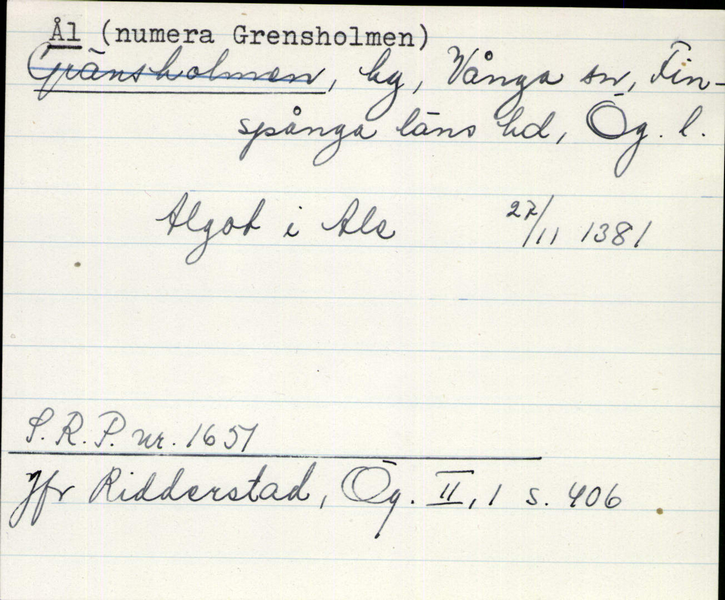 Ål (numera Grensholmen)
Gränsholmen, hg, Vånga sn, Fin-
spånga läns hd, Ög. l.
Algot i Als 27/11 1381
S.R.P. nr. 1651
Jfr Ridderstad, Ög. II, 1 s. 406